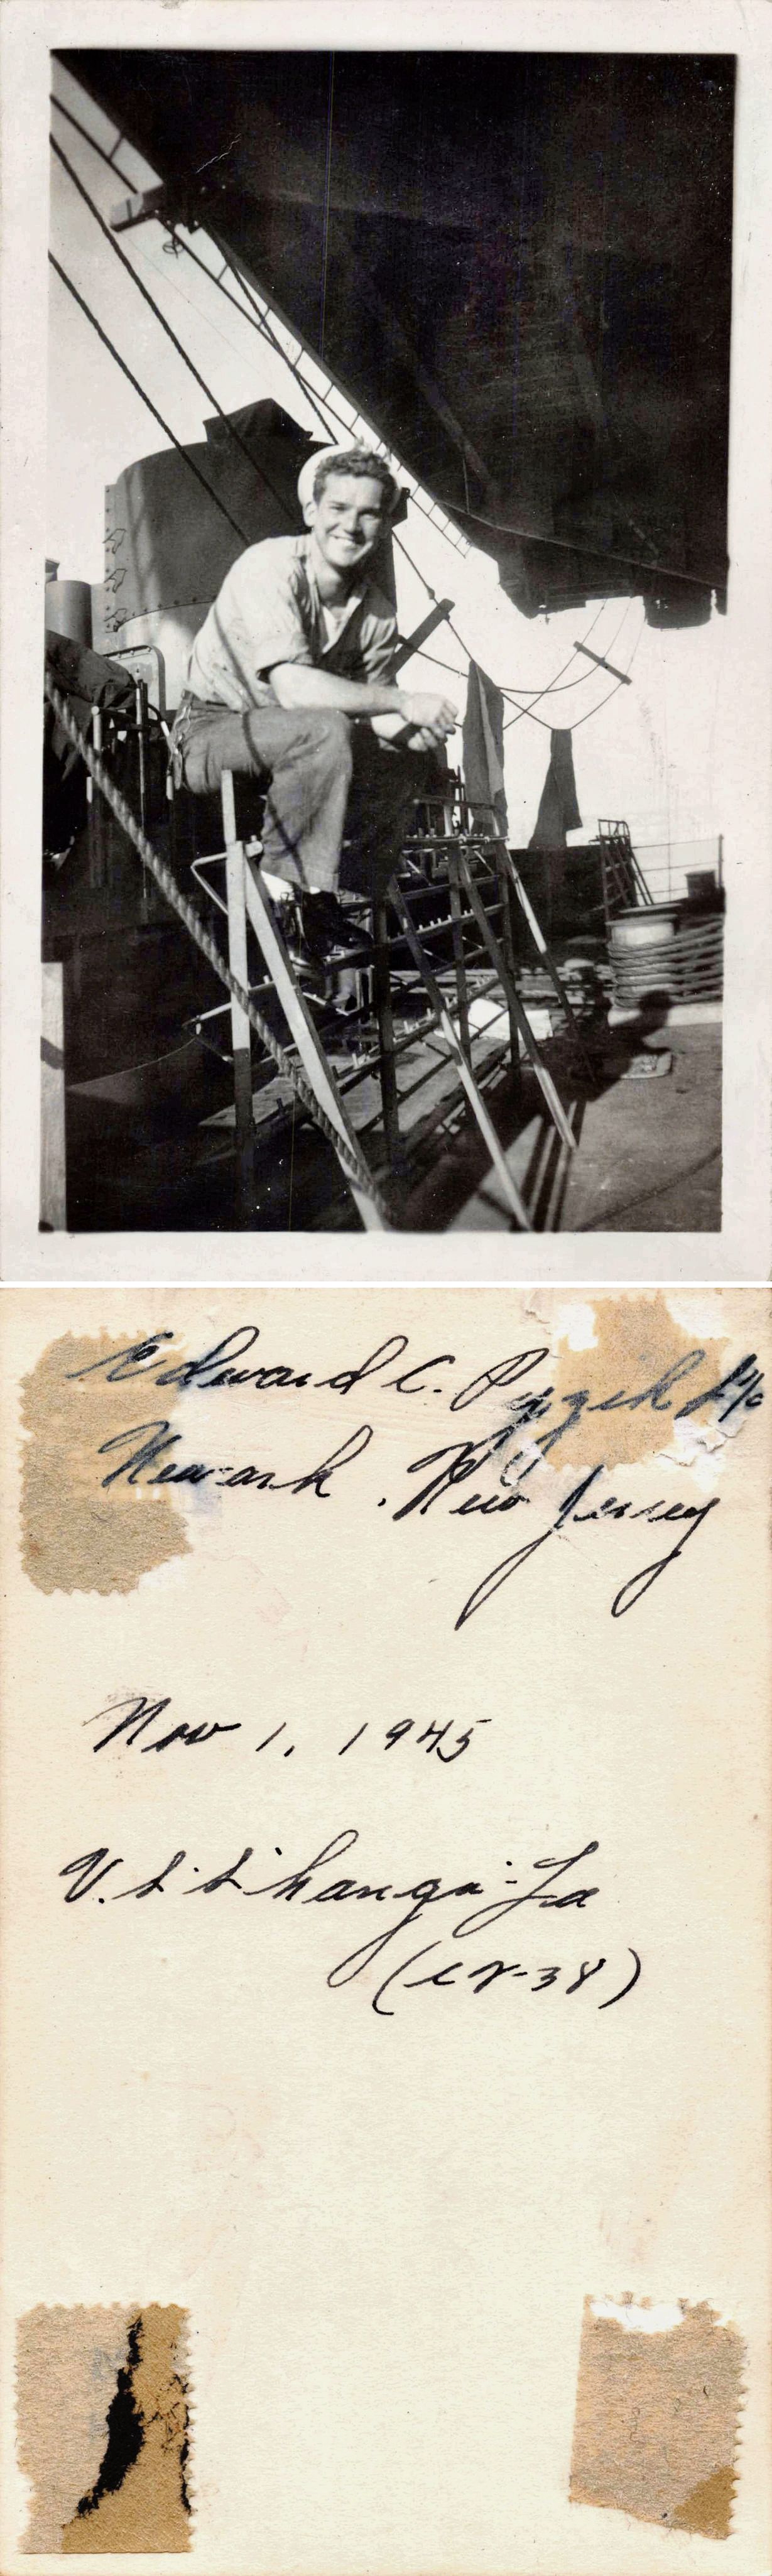 Edward C. S 1/c
Newark, New Jersey
Nov 1, 1945
U.S.S Shangri-La
(CV-38)